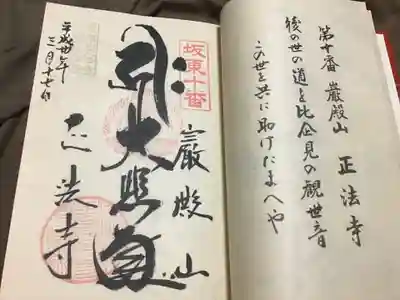 第十番 巖殿山 正法寺
後の世の道を比企見の観世音
この世を共に助けたまへや
坂東十番
巖殿山
大悲殿
正法寺
平成廿年
三月十七日